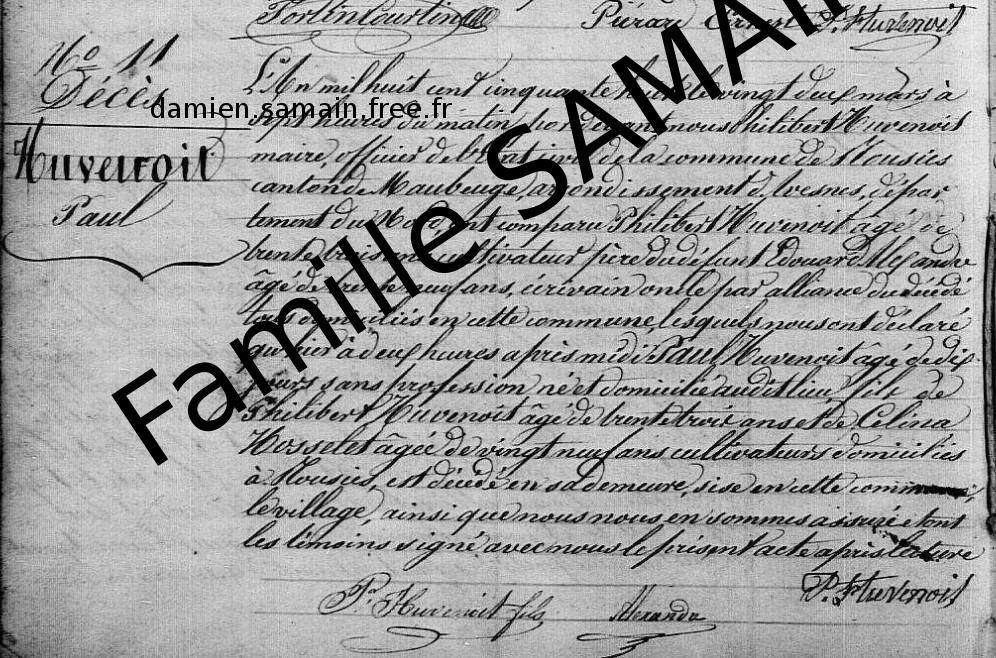 Fortin Courtin Piérard Ernest P. Huvenoit
N° 11
Décès
Huvenoit
Paul
L'An mil huit cent cinquante huit le vingt deux mars à
sept heures du matin, devant nous Philibert Huvenoit
maire, officier de l'état civil de la commune de Mousies
canton de Maubeuge, arrondissement d'Avesnes, dépar
tement du Nord, ont comparu Philibert Huvenoit âgé de
trente trois ans cultivateur père du défunt Edouard Alexandre
âgé de trente neuf ans, écrivain oncle par alliance du décédé
tous domiciliés en cette commune, lesquels nous ont déclaré
qu'hier à deux heures après midi Paul Huvenoit âgé de dix
jours sans profession né et domicilié audit lieu, fils de
Philibert Huvenoit âgé de trente trois ans et de Célina
Hosselet âgée de vingt neuf ans cultivateurs domiciliés
à Mousies, est décédé en sa demeure, sise en cette commune,
le village, ainsi que nous nous en sommes assuré et ont
les témoins signé avec nous le présent acte après lecture
P. Huvenoit
P. Huvenoit fils Alexandre
damien.samain.free.fr
Famille SAMAIN